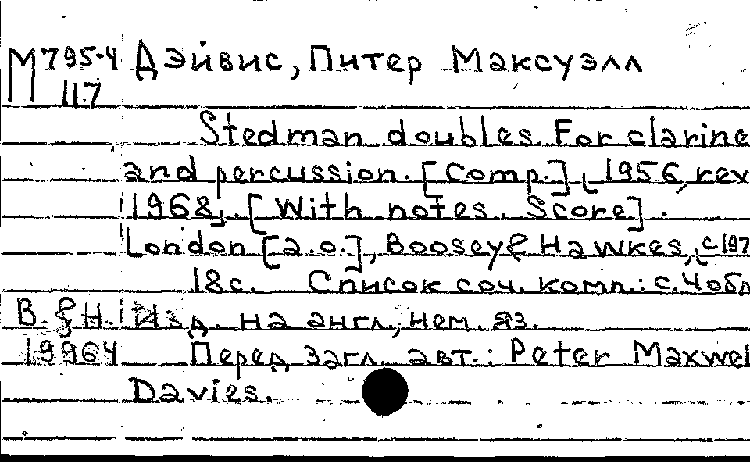 М795-4 Дэйвис, Питер Максуэлл
117
Stedman doubles. For clarine
and percussion. [Comp.] [1956, rev
1968]. [With notes. Score].
London [a.o.], Boosey & Hawkes, c197
18с. Список соч. комп.: с.4 обл
B. & H. Изд. на англ., нем. яз.
19964 Перед загл. авт.: Peter Maxwel
Davies.